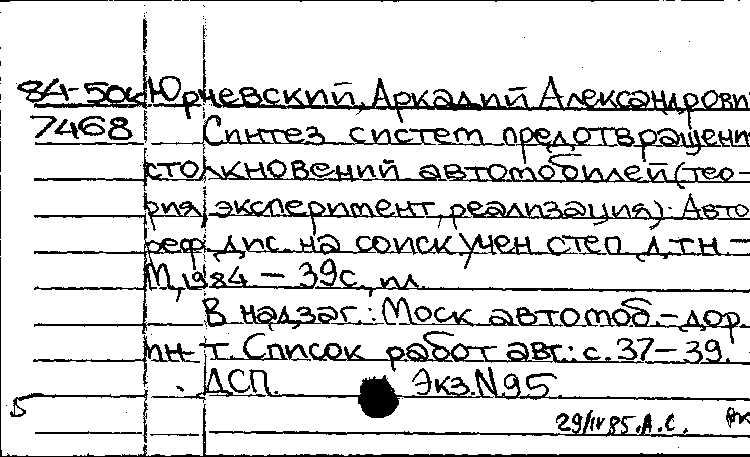 84-50к Юрчевский, Аркадий Александрови
7468 Синтез систем предотвращени
столкновений автомобилей (тео-
рия, эксперимент, реализация): Авто
реф. дис. на соиск учен степ д.т.н. –
М, 1984 – 39с., ил.
В надзаг.: Моск автомоб.-дор.
ин-т. Список работ авт.: с. 37–39.
ДСП. Экз. N 95
Б
29/IV 85. А.С.